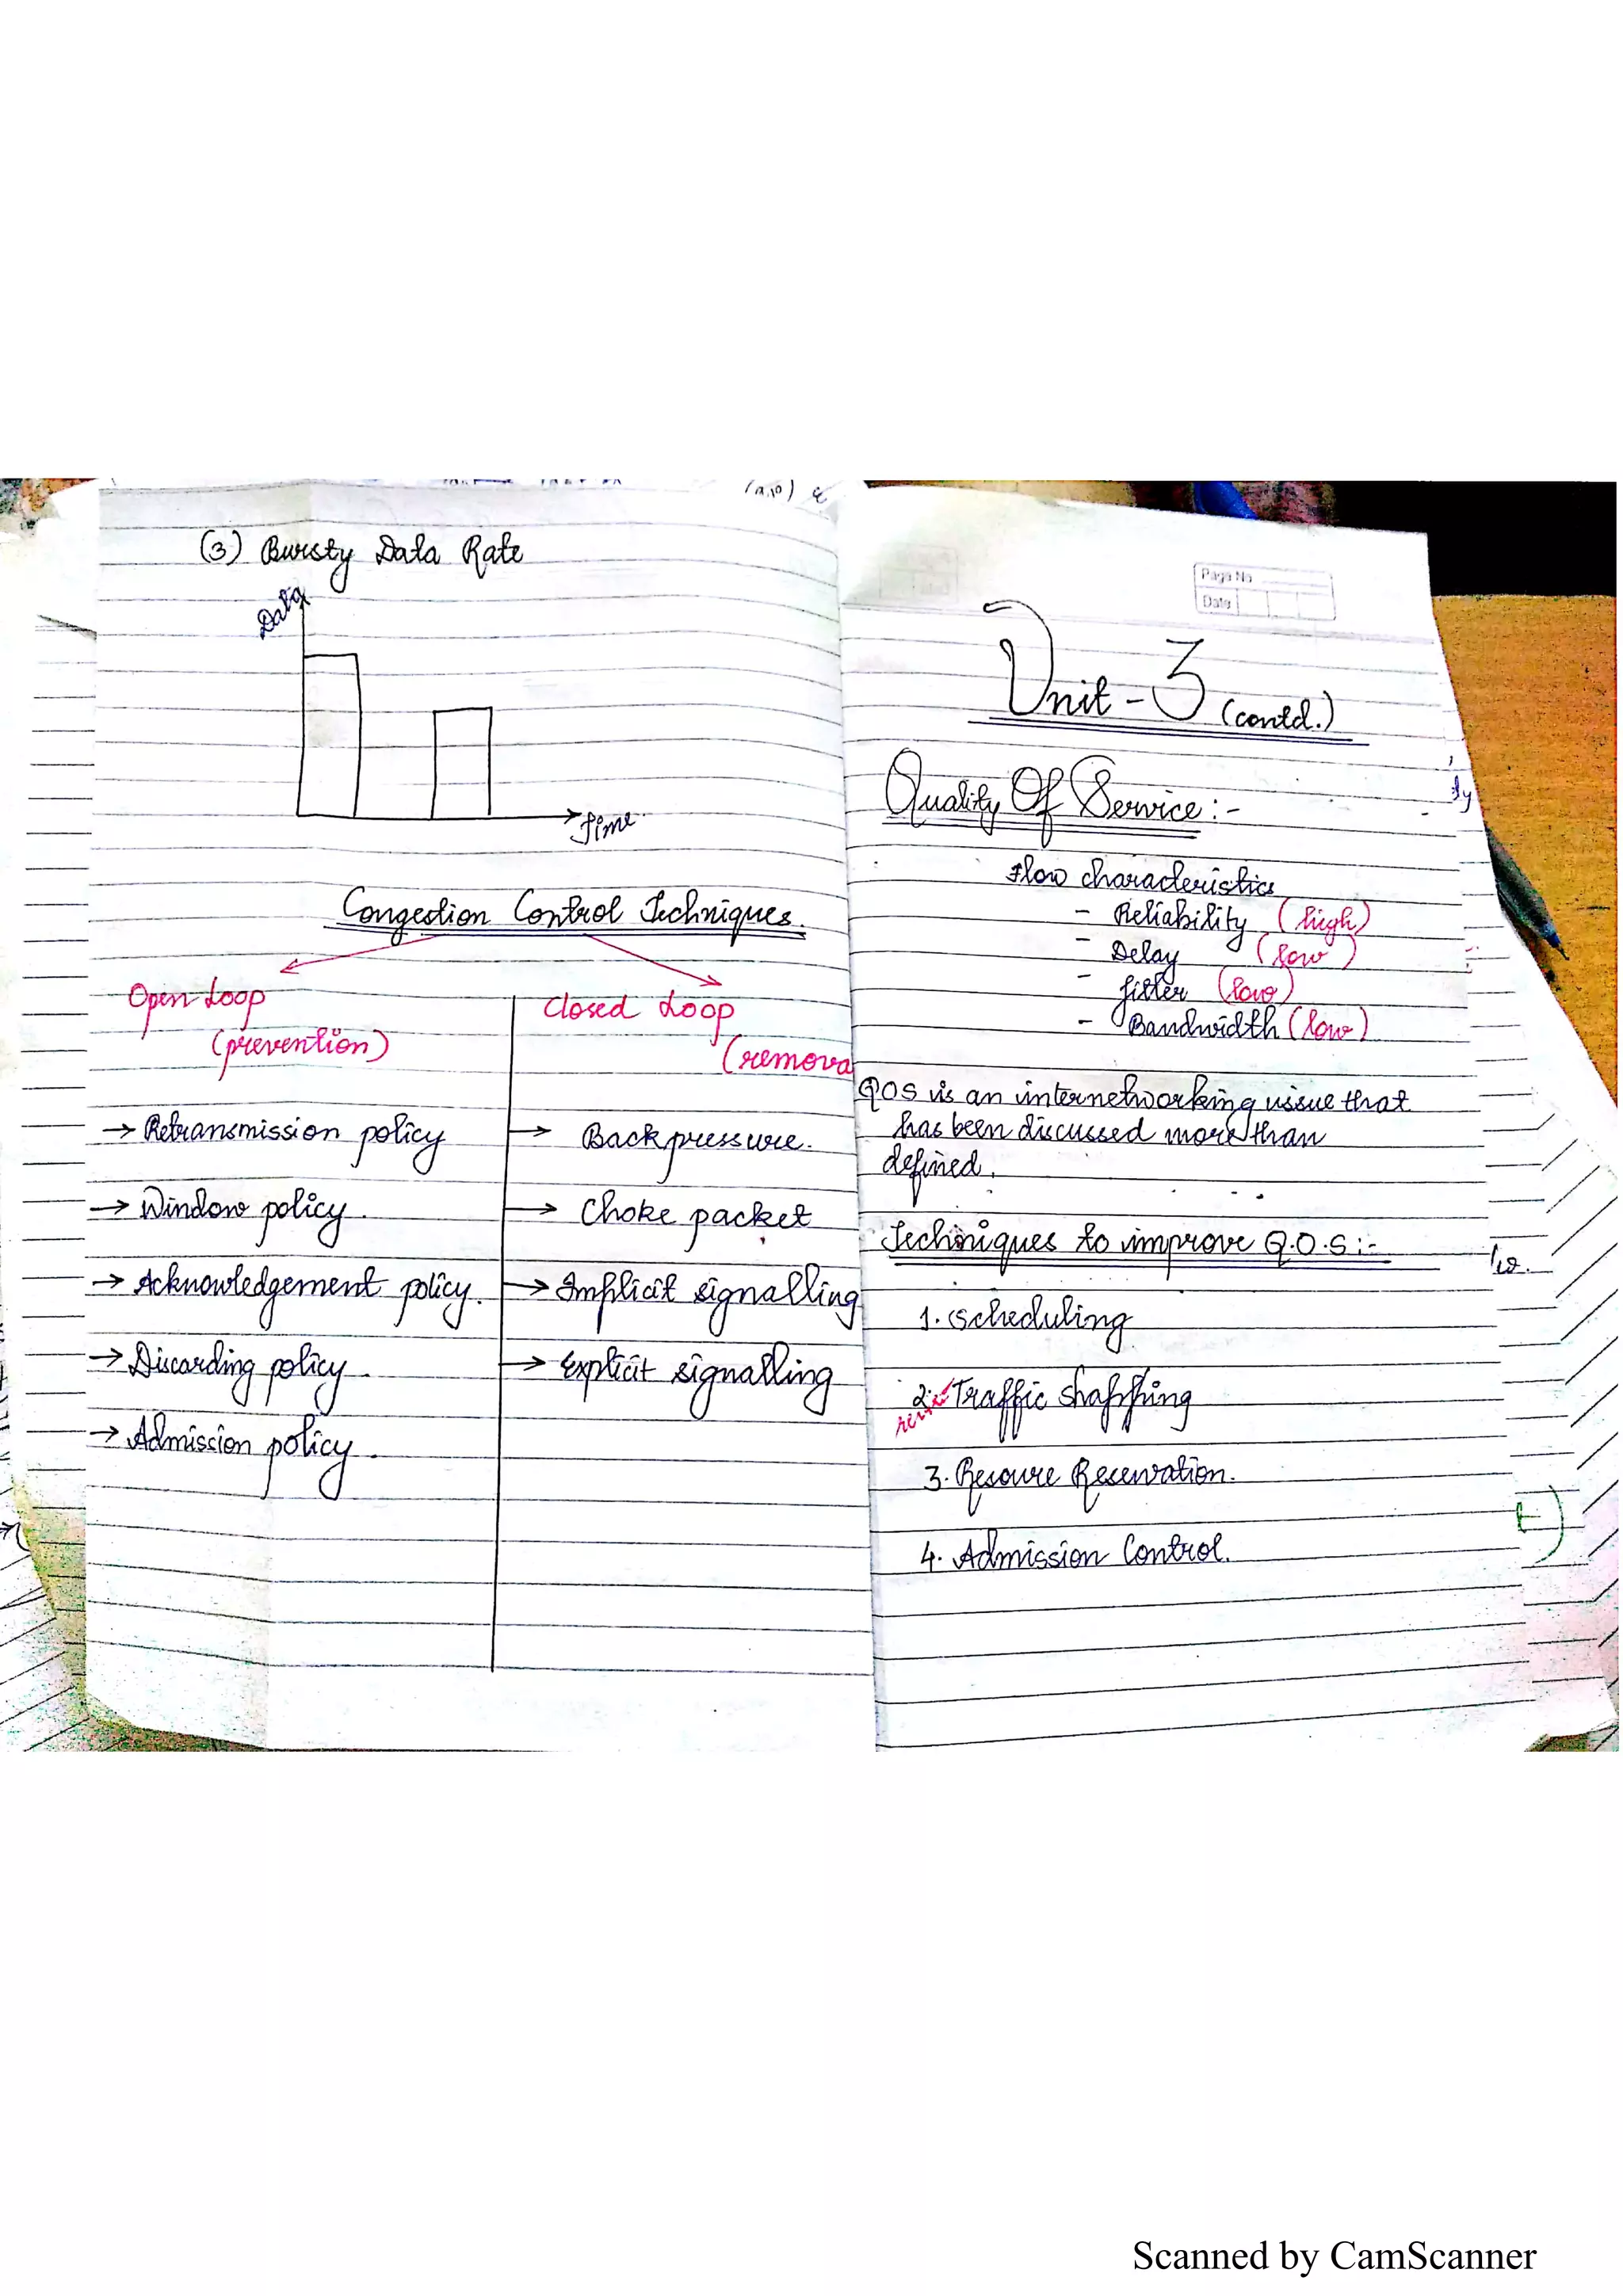 (3) Bursty Data Rate
Data
Time
Congestion Control Techniques.
Open Loop
(prevention)
→ Retransmission policy
→ Window policy.
→ Acknowledgement policy.
→ Discarding policy.
→ Admission policy.
Closed Loop
(remova
→ Back pressure.
→ Choke packet
→ Implicit signalling
→ Explicit signalling
Page No
Date
Unit - 3 (contd.)
Quality Of Service :-
Flow characteristics
- Reliability (high)
- Delay (low)
- Jitter (low)
- Bandwidth (low)
QOS is an internetworking issue that
has been discussed more than
defined.
Techniques to improve Q.O.S :-
1. Scheduling
2. Traffic Shapping
3. Resoure Reservation.
4. Admission Control.
Scanned by CamScanner